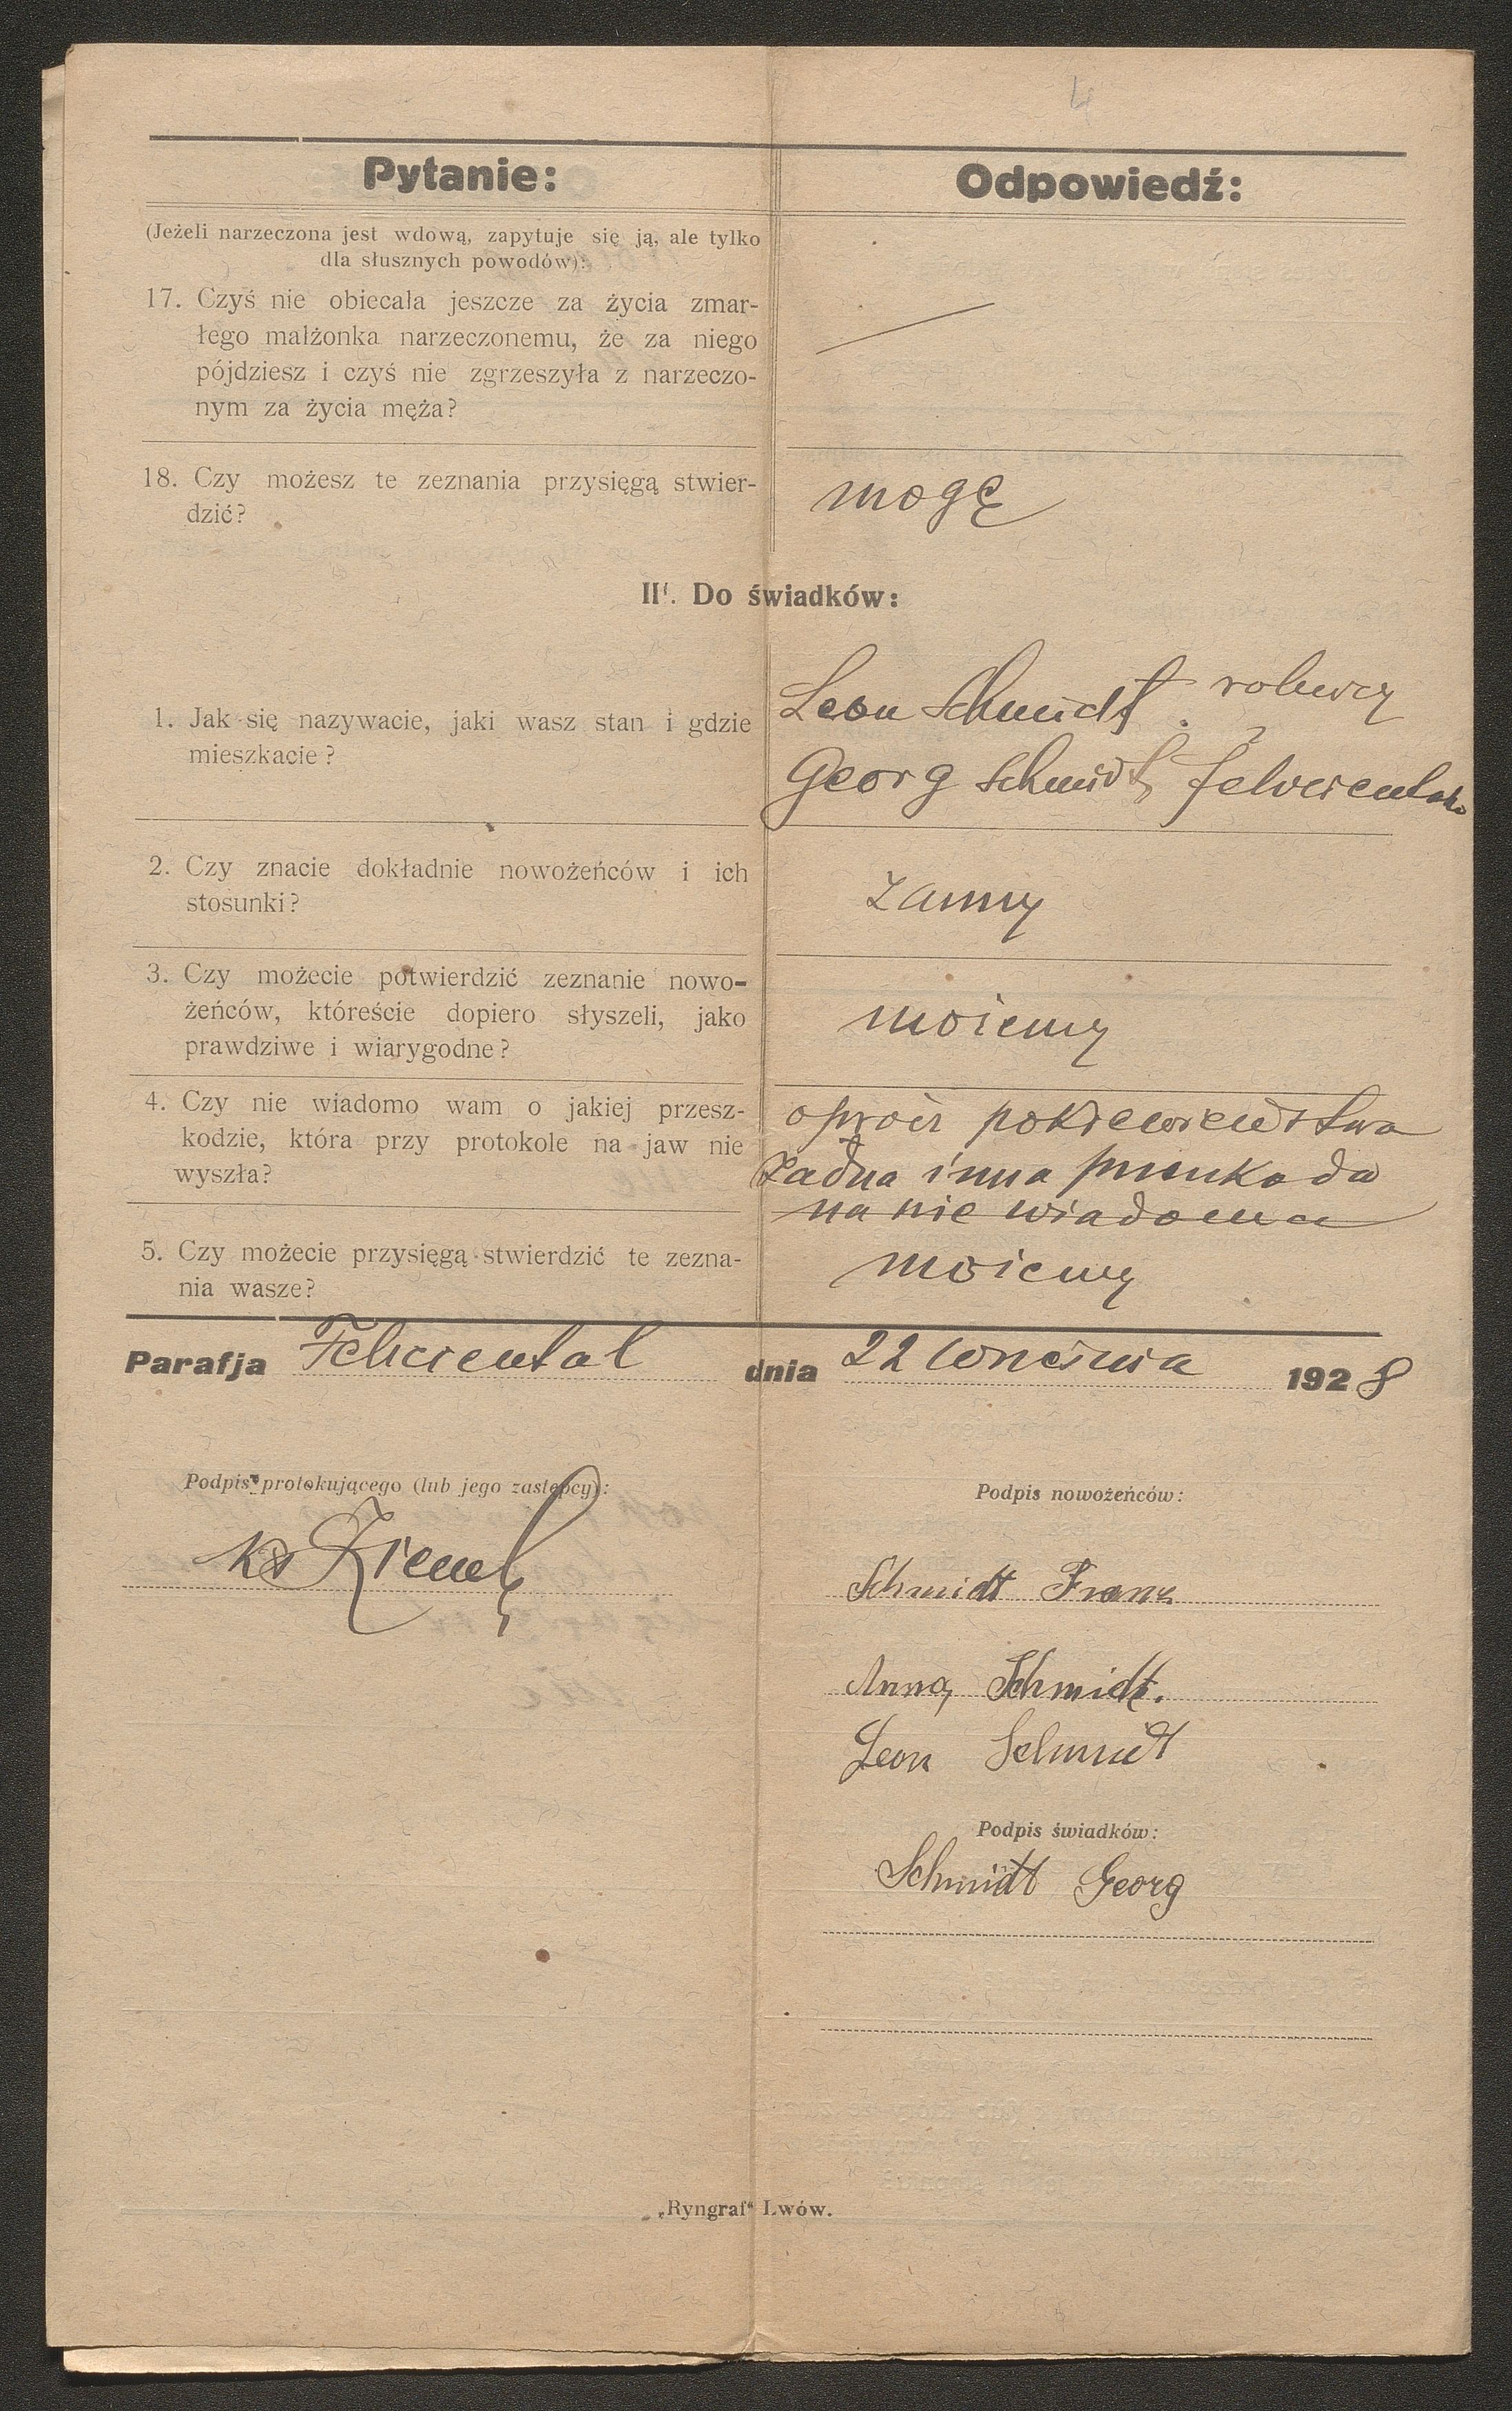 4
Pytanie:
Odpowiedź:
(Jeżeli narzeczona jest wdową, zapytuje się ją, ale tylko
dla słusznych powodów):
17. Czyś nie obiecała jeszcze za życia zmar-
łego małżonka narzeczonemu, że za niego
pójdziesz i czyś nie zgrzeszyła z narzeczo-
nym za życia męża?
18. Czy możesz te zeznania przysięgą stwier-
dzić?
mogę
II. Do świadków:
1. Jak się nazywacie, jaki wasz stan i gdzie
mieszkacie?
Leon Schmidt rolnicy
Georg Schmidt z
2. Czy znacie dokładnie nowożeńców i ich
stosunki?
znamy
3. Czy możecie potwierdzić zeznanie nowo-
żeńców, któreście dopiero słyszeli, jako
prawdziwe i wiarygodne?
możemy
4. Czy nie wiadomo wam o jakiej przesz-
kodzie, która przy protokole na jaw nie
wyszła?
oprócz pokrewieństwa
żadna inna przeszkoda
na nie wiadoma
5. Czy możecie przysięgą stwierdzić te zezna-
nia wasze?
możemy
Parafja Felicienthal dnia 22 września 1928
Podpis protokującego (lub jego zastępcy):
Podpis nowożeńców:
ks
Schmidt Franz
Anna Schmidt.
Leon Schmidt
Podpis świadków:
Schmidt Georg
„Ryngraf“ Lwów.